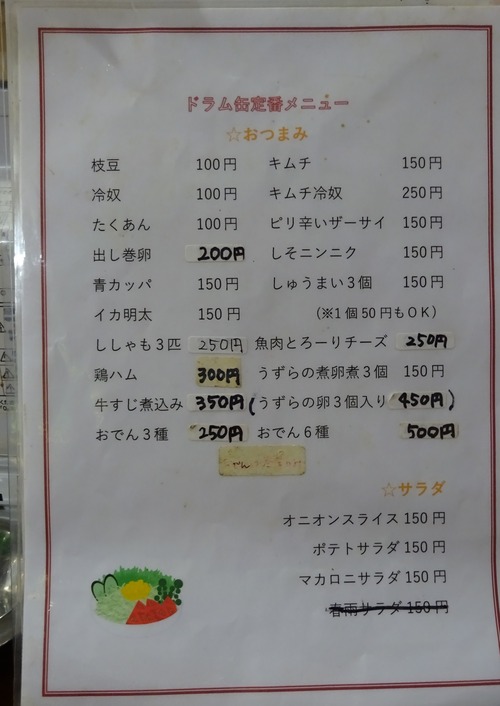 ドラム缶定番メニュー
☆おつまみ
枝豆 100円 キムチ 150円
冷奴 100円 キムチ冷奴 250円
たくあん 100円 ピリ辛いザーサイ 150円
出し巻卵 200円 しそニンニク 150円
青カッパ 150円 しゅうまい3個 150円
イカ明太 150円 (※1個50円もOK)
ししゃも3匹 250円 魚肉とろーりチーズ 250円
鶏ハム 300円 うずらの煮卵煮3個 150円
牛すじ煮込み 350円 (うずらの卵3個入り 450円)
おでん3種 250円 おでん6種 500円
☆サラダ
オニオンスライス 150円
ポテトサラダ 150円
マカロニサラダ 150円
春雨サラダ 150円